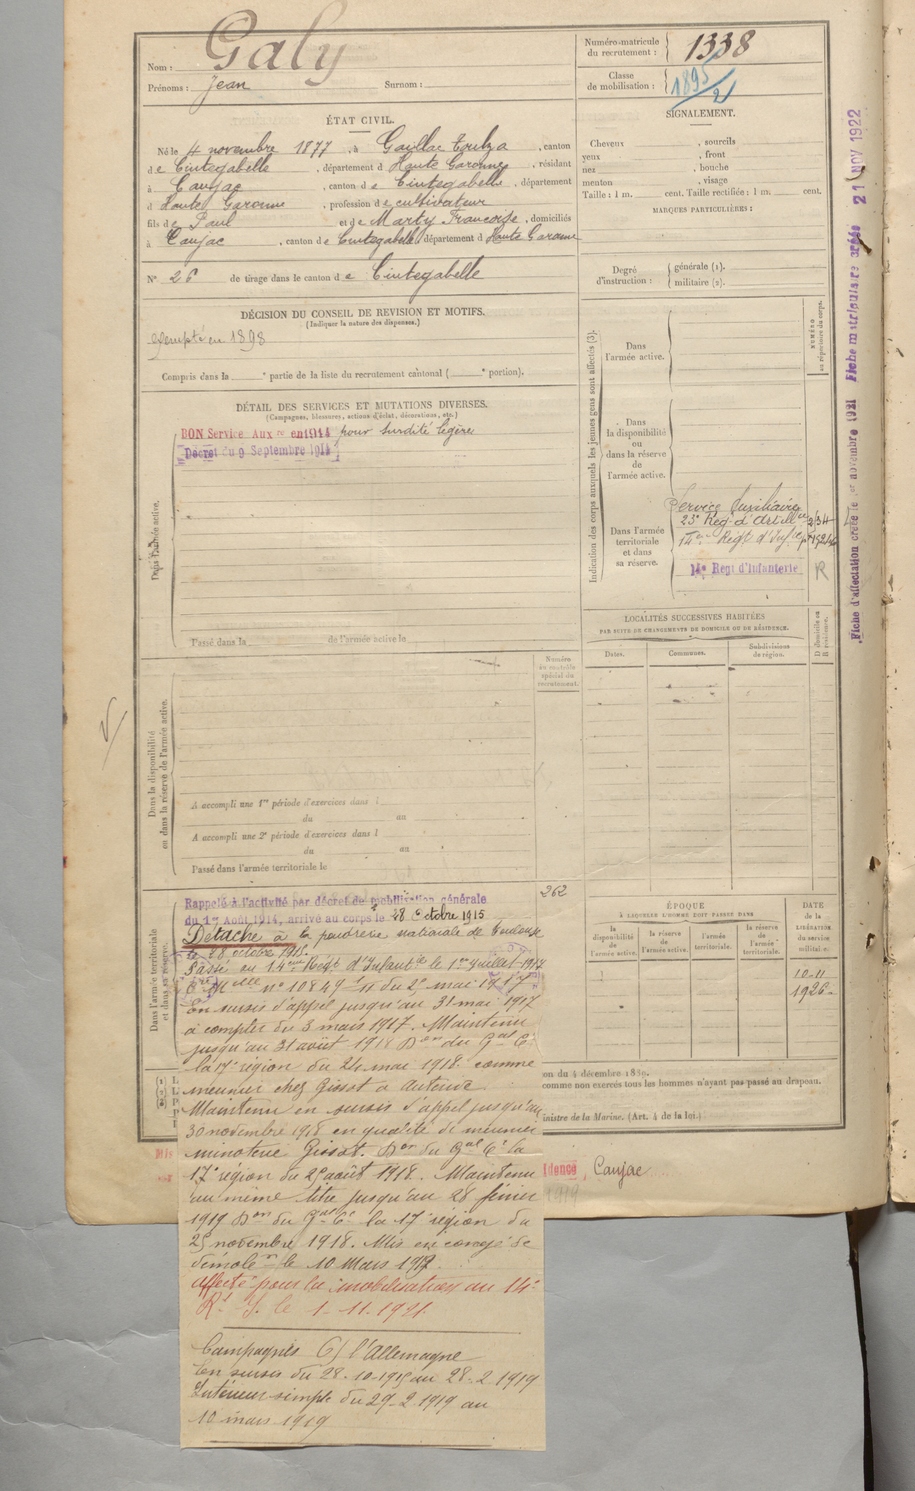 Nom : Galy
Prénoms : Jean Surnom :
Numéro-matricule du recrutement : 1338
Classe de mobilisation : 1895/2
ÉTAT CIVIL.
Né le 4 novembre 1877, à Gaillac Toulza, canton
de Cintegabelle, département d Haute Garonne, résidant
à Caujac, canton de Cintegabelle, département
d Haute Garonne, profession de cultivateur
fils de Paul et de Marty Françoise, domiciliés
à Caujac, canton de Cintegabelle, département d Haute Garonne
N° 26 de tirage dans le canton de Cintegabelle
SIGNALEMENT.
Cheveux , sourcils
yeux , front
nez , bouche
menton , visage
Taille : 1 m. cent. Taille rectifiée : 1 m. cent.
MARQUES PARTICULIÈRES :
Degré d'instruction : générale (1).
militaire (2).
DÉCISION DU CONSEIL DE REVISION ET MOTIFS.
(Indiquer la nature des dispenses.)
Exempté en 1898
Compris dans la e partie de la liste du recrutement cantonal ( e portion).
DÉTAIL DES SERVICES ET MUTATIONS DIVERSES.
(Campagnes, blessures, actions d'éclat, décorations, etc.)
BON Service Aux re en 1914 pour surdité légère
Décret du 9 Septembre 1914
Dans l'armée active.
Passé dans la de l'armée active le
Indication des corps auxquels les jeunes gens sont affectés (3).
Dans l'armée active.
NUMÉRO au répertoire du corps.
Dans la disponibilité ou dans la réserve de l'armée active.
Dans l'armée territoriale et dans sa réserve.
Service Auxiliaire
23e Regt d'Artillie
14eme Regt d'Infie
14e Regt d'Infanterie R
LOCALITÉS SUCCESSIVES HABITÉES
PAR SUITE DE CHANGEMENTS DE DOMICILE OU DE RÉSIDENCE.
Dates. Communes. Subdivisions de région. D domicile ou R résidence.
Numéro au contrôle spécial du recrutement.
Dans la disponibilité ou dans la réserve de l'armée active.
A accompli une 1re période d'exercices dans l
du au
A accompli une 2e période d'exercices dans l
du au
Passé dans l'armée territoriale le
262
ÉPOQUE
À LAQUELLE L'HOMME DOIT PASSER DANS
la disponibilité de l'armée active. la réserve de l'armée active. l'armée territoriale. la réserve de l'armée territoriale.
DATE de la LIBÉRATION du service militaire.
10-11
1926
Dans l'armée territoriale et dans sa réserve.
Rappelé à l'activité par décret de mobilisation générale
du 1er Août 1914, arrivé au corps le 28 Octobre 1915
Détaché à la poudrerie nationale de Toulouse
le 28 octobre 1915.
Passé au 14eme Regt d'Infantie le 1er juillet 1917
Cre Mlle n° 10849 du 2 mai 1917
En sursis d'appel jusqu'au 31 mai 1917
à compter du 3 mars 1917. Maintenu
jusqu'au 31 août 1918 Don du Gal Ct
la 17e région du 24 mai 1918 comme
meunier chez Gissot à Auterive
Maintenu en sursis d'appel jusqu'au
30 novembre 1918 en qualité de meunier
minoterie Gissot. Don du Gal Ct la
17e région du 25 août 1918. Maintenu
au même titre jusqu'au 28 février
1919 Don du Gal Ct la 17e région du
25 novembre 1918. Mis en congé de
démole on le 10 Mars 1919.
affecté pour la mobilisation au 14e
Rt I. le 1-11.1921.
Campagnes C/ l'Allemagne
En sursis du 28-10-1915 au 28-2 1919
Intérieur simple du 29-2 1919 au
10 mars 1919
on du 4 décembre 1889.
comme non exercés tous les hommes n'ayant pas passé au drapeau.
inistre de la Marine. (Art. 4 de la loi.)
idence, Caujac
1919
Fiche d'affectation créée le 1er novembre 1921 Fiche matriculaire créée 21 NOV 1922